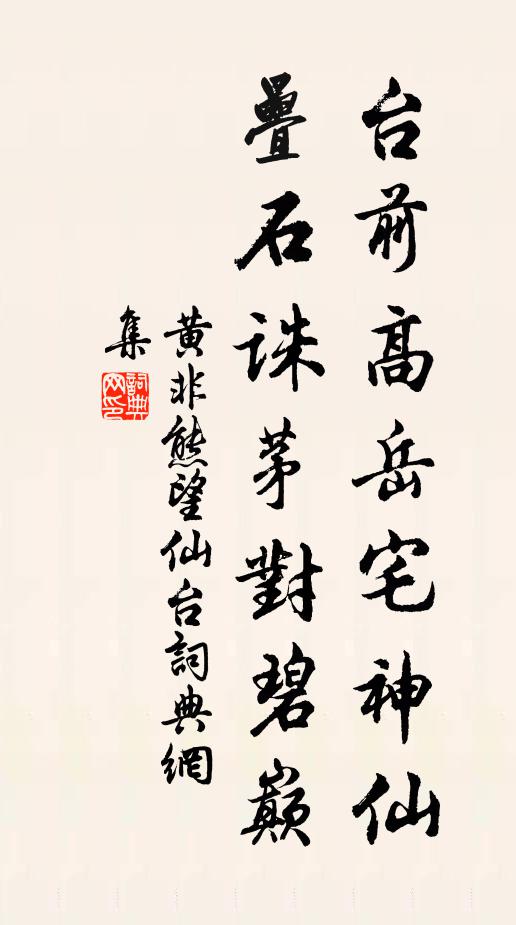 台前高岳宅神仙
疊石誅茅對碧巔
黄非熊望仙台詞典網
集
詞典
网印